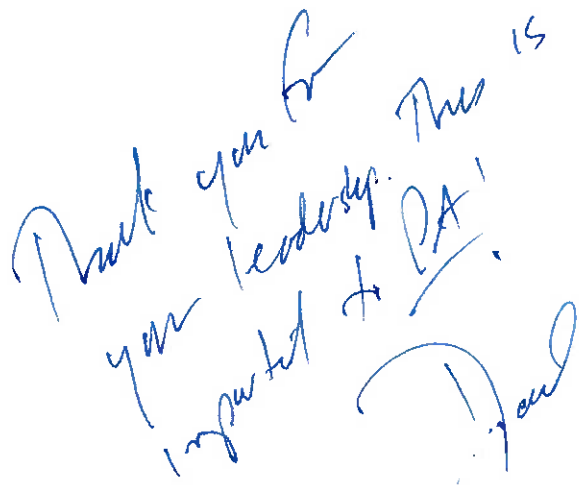 Thank you for
your leadership. This is
important to PA!